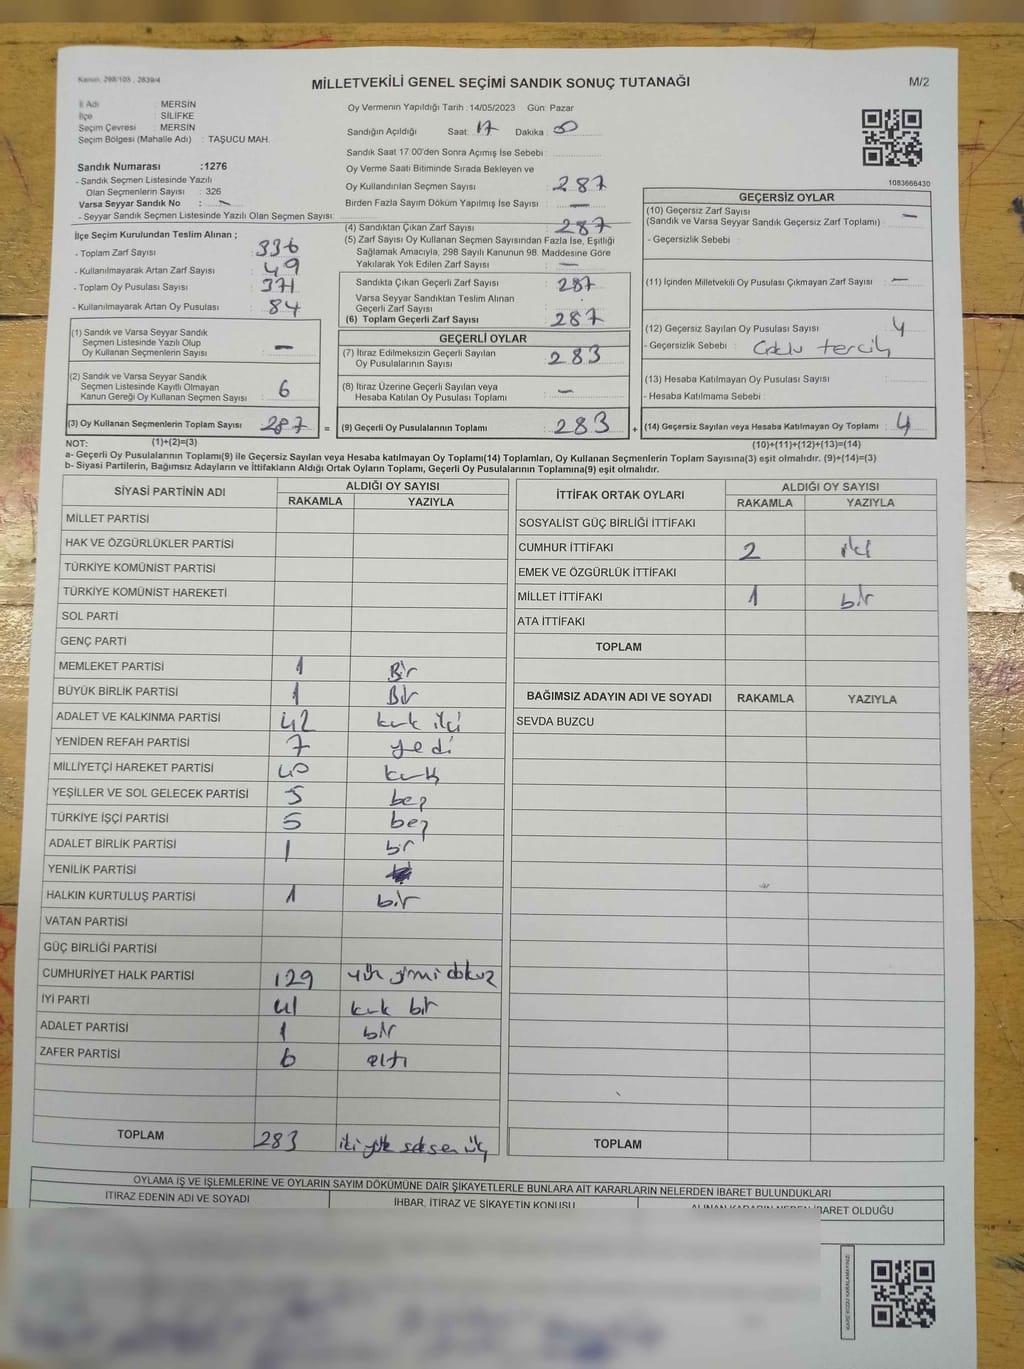 Kanun, 298/105 , 2839/4
MİLLETVEKİLİ GENEL SEÇİMİ SANDIK SONUÇ TUTANAĞI
M/2
İl Adı : MERSİN
İlçe : SİLİFKE
Seçim Çevresi : MERSİN
Seçim Bölgesi (Mahalle Adı) : TAŞUCU MAH.
Sandık Numarası :1276
- Sandık Seçmen Listesinde Yazılı
Olan Seçmenlerin Sayısı : 326
Varsa Seyyar Sandık No : —
- Seyyar Sandık Seçmen Listesinde Yazılı Olan Seçmen Sayısı:
Oy Vermenin Yapıldığı Tarih :14/05/2023 Gün: Pazar
Sandığın Açıldığı Saat: 17 Dakika : 00
Sandık Saat 17:00'den Sonra Açımış İse Sebebi :
Oy Verme Saati Bitiminde Sırada Bekleyen ve
Oy Kullandırılan Seçmen Sayısı : 287
Birden Fazla Sayım Döküm Yapılmış İse Sayısı : —
1083666430
İlçe Seçim Kurulundan Teslim Alınan ;
- Toplam Zarf Sayısı : 336
- Kullanılmayarak Artan Zarf Sayısı : 49
- Toplam Oy Pusulası Sayısı : 371
- Kullanılmayarak Artan Oy Pusulası : 84
(1) Sandık ve Varsa Seyyar Sandık
Seçmen Listesinde Yazılı Olup
Oy Kullanan Seçmenlerin Sayısı : —
(2) Sandık ve Varsa Seyyar Sandık
Seçmen Listesinde Kayıtlı Olmayan
Kanun Gereği Oy Kullanan Seçmen Sayısı : 6
(3) Oy Kullanan Seçmenlerin Toplam Sayısı : 287 =
(4) Sandıktan Çıkan Zarf Sayısı : 287
(5) Zarf Sayısı Oy Kullanan Seçmen Sayısından Fazla İse, Eşitliği
Sağlamak Amacıyla, 298 Sayılı Kanunun 98. Maddesine Göre
Yakılarak Yok Edilen Zarf Sayısı : —
Sandıkta Çıkan Geçerli Zarf Sayısı : 287
Varsa Seyyar Sandıktan Teslim Alınan
Geçerli Zarf Sayısı :
(6) Toplam Geçerli Zarf Sayısı : 287
GEÇERLİ OYLAR
(7) İtiraz Edilmeksizin Geçerli Sayılan
Oy Pusulalarının Sayısı : 283
(8) İtiraz Üzerine Geçerli Sayılan veya
Hesaba Katılan Oy Pusulası Toplamı : —
(9) Geçerli Oy Pusulalarının Toplamı : 283 +
GEÇERSİZ OYLAR
(10) Geçersiz Zarf Sayısı
(Sandık ve Varsa Seyyar Sandık Geçersiz Zarf Toplamı) : —
- Geçersizlik Sebebi :
(11) İçinden Milletvekili Oy Pusulası Çıkmayan Zarf Sayısı : —
(12) Geçersiz Sayılan Oy Pusulası Sayısı : 4
- Geçersizlik Sebebi : Çoklu tercih
(13) Hesaba Katılmayan Oy Pusulası Sayısı :
- Hesaba Katılmama Sebebi :
(14) Geçersiz Sayılan veya Hesaba Katılmayan Oy Toplamı : 4
NOT: (1)+(2)=(3)
(10)+(11)+(12)+(13)=(14)
a- Geçerli Oy Pusulalarının Toplamı(9) ile Geçersiz Sayılan veya Hesaba katılmayan Oy Toplamı(14) Toplamları, Oy Kullanan Seçmenlerin Toplam Sayısına(3) eşit olmalıdır. (9)+(14)=(3)
b- Siyasi Partilerin, Bağımsız Adayların ve İttifakların Aldığı Ortak Oyların Toplamı, Geçerli Oy Pusulalarının Toplamına(9) eşit olmalıdır.
SİYASİ PARTİNİN ADI
ALDIĞI OY SAYISI
RAKAMLA YAZIYLA
MİLLET PARTİSİ
HAK VE ÖZGÜRLÜKLER PARTİSİ
TÜRKİYE KOMÜNİST PARTİSİ
TÜRKİYE KOMÜNİST HAREKETİ
SOL PARTİ
GENÇ PARTİ
MEMLEKET PARTİSİ 1 Bir
BÜYÜK BİRLİK PARTİSİ 1 Bir
ADALET VE KALKINMA PARTİSİ 42 kırk iki
YENİDEN REFAH PARTİSİ 7 yedi
MİLLİYETÇİ HAREKET PARTİSİ 40 kırk
YEŞİLLER VE SOL GELECEK PARTİSİ 5 beş
TÜRKİYE İŞÇİ PARTİSİ 5 beş
ADALET BİRLİK PARTİSİ 1 bir
YENİLİK PARTİSİ
HALKIN KURTULUŞ PARTİSİ 1 bir
VATAN PARTİSİ
GÜÇ BİRLİĞİ PARTİSİ
CUMHURİYET HALK PARTİSİ 129 yüz yirmi dokuz
İYİ PARTİ 41 kırk bir
ADALET PARTİSİ 1 bir
ZAFER PARTİSİ 6 altı
TOPLAM 283 iki yüz seksen üç
İTTİFAK ORTAK OYLARI
ALDIĞI OY SAYISI
RAKAMLA YAZIYLA
SOSYALİST GÜÇ BİRLİĞİ İTTİFAKI
CUMHUR İTTİFAKI 2 iki
EMEK VE ÖZGÜRLÜK İTTİFAKI
MİLLET İTTİFAKI 1 bir
ATA İTTİFAKI
TOPLAM
BAĞIMSIZ ADAYIN ADI VE SOYADI RAKAMLA YAZIYLA
SEVDA BUZCU
TOPLAM
OYLAMA İŞ VE İŞLEMLERİNE VE OYLARIN SAYIM DÖKÜMÜNE DAİR ŞİKAYETLERLE BUNLARA AİT KARARLARIN NELERDEN İBARET BULUNDUKLARI
İTİRAZ EDENİN ADI VE SOYADI
İHBAR, İTİRAZ VE ŞİKAYETİN KONUSU
ALINAN KARARIN NEDEN İBARET OLDUĞU
KARE KODU KARALAMAYINIZ!